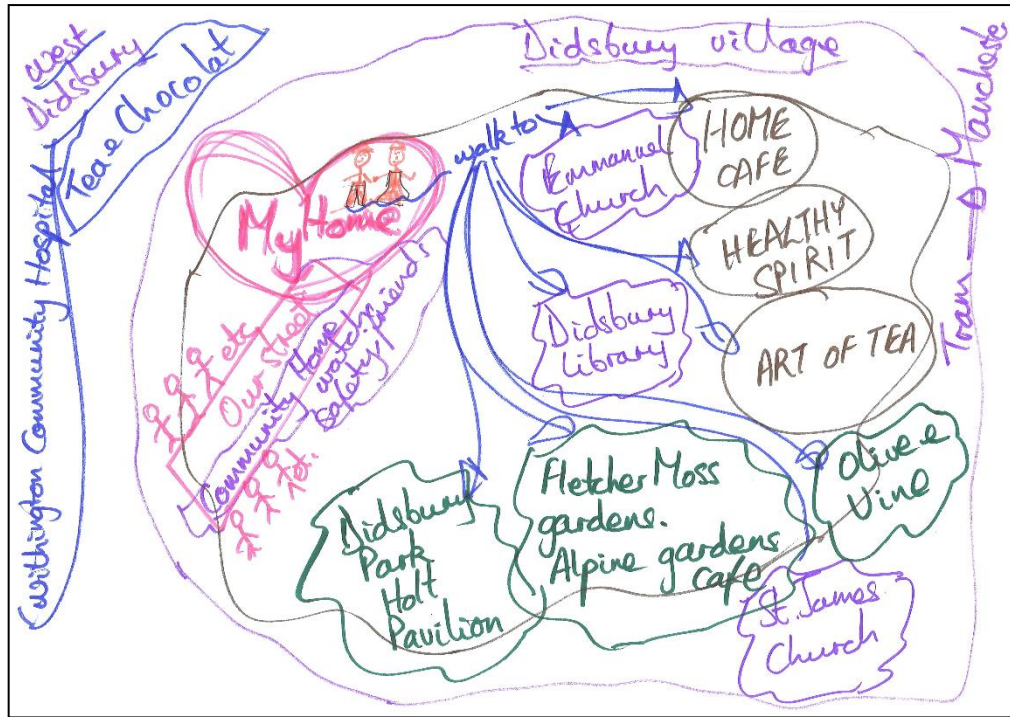 West
Didsbury
Tea e Chocolat
Withington Community Hospital
Didsbury village
Tram → Manchester
My Home
walk to
Emmanuel
Church
HOME
CAFE
HEALTHY
SPIRIT
ART OF TEA
Didsbury
library
etc
Our street
Community Home
watch
safety/friends
etc.
Didsbury
Park
Holt
Pavilion
Fletcher Moss
gardens.
Alpine gardens
cafe
Olive e
Vine
St. James
Church